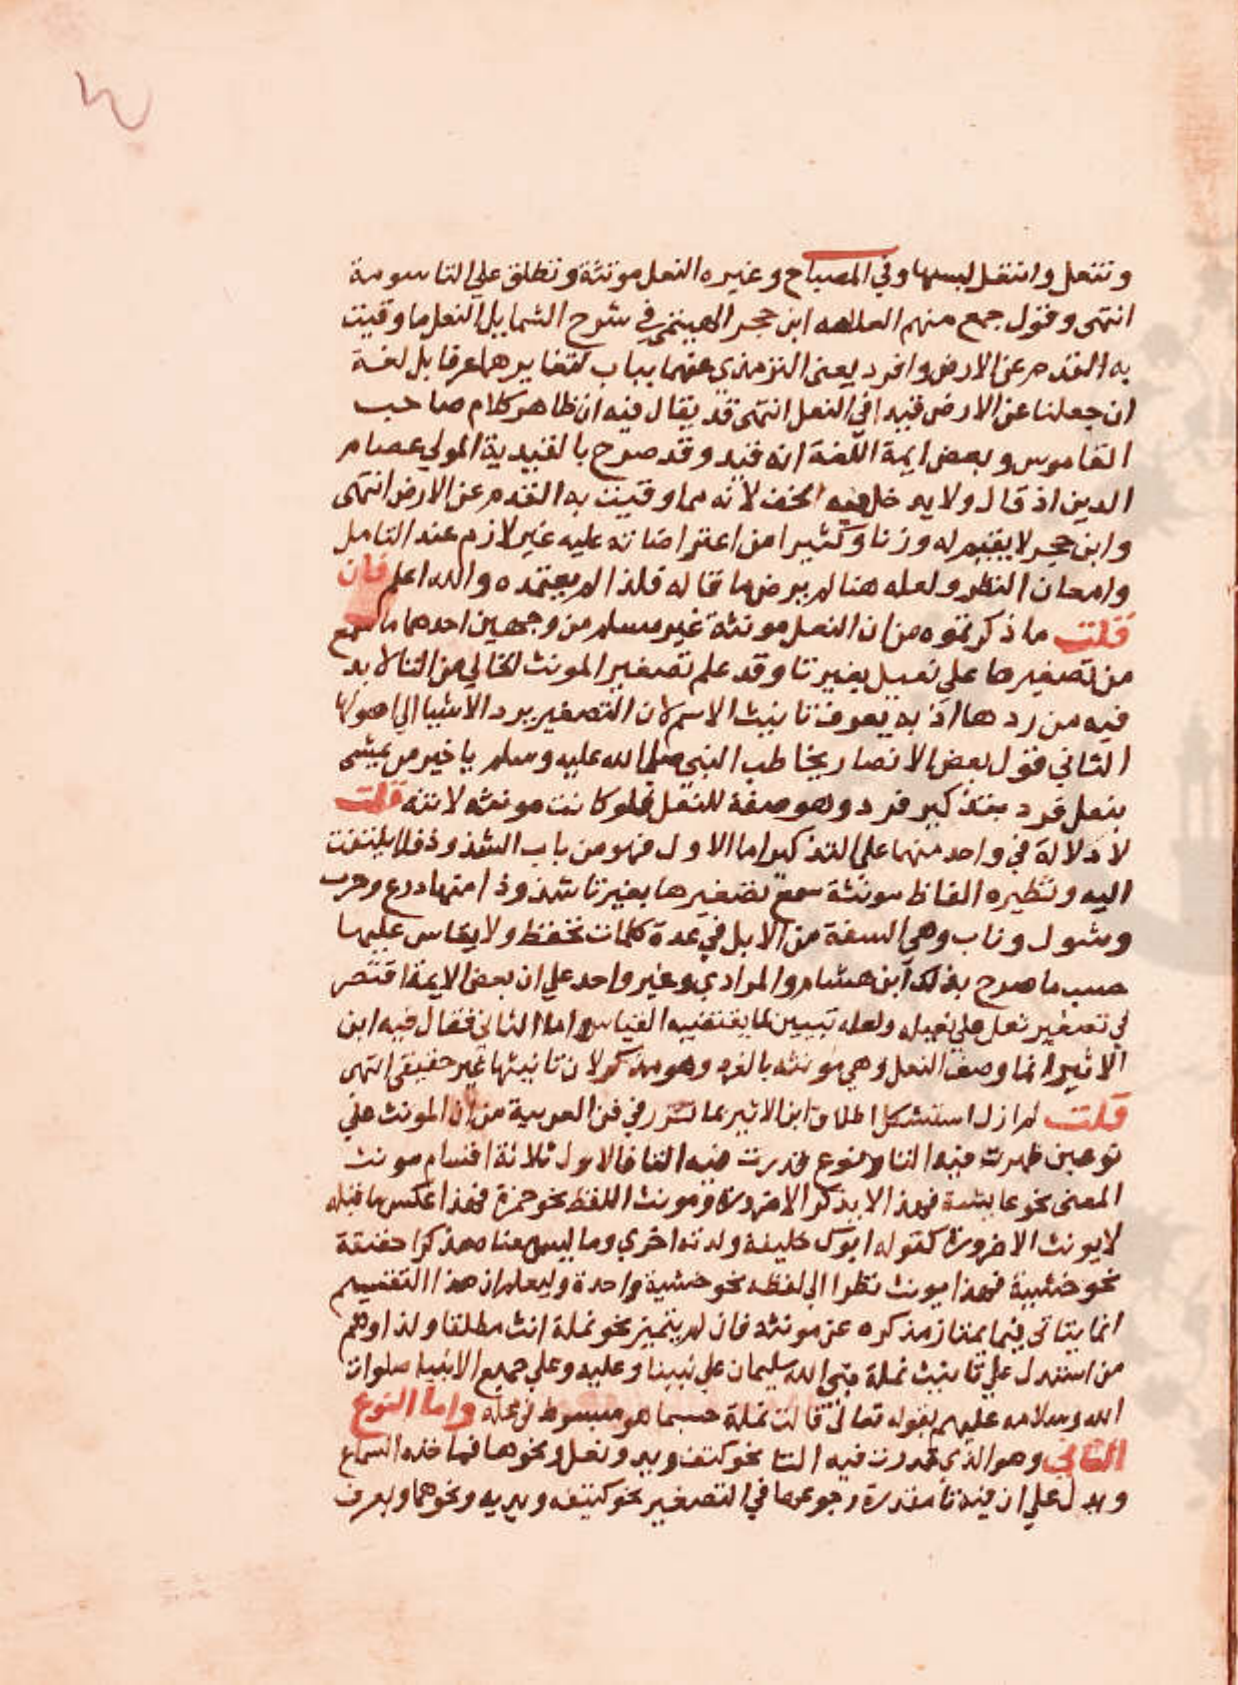 وتنتعل وانتعل لبسها وفي المصباح وغيره النعل مونثة وتطلق علي التاسومة
انتهى وقول جمع منهم العلامه ابن حجر الهيتمي في شرح الشمايل النعل ما وقيت
به القدم عن الارض وافرد يعنى الترمذي عنهما بباب لتغايرهما عرفا بل لغة
ان جعلنا عن الارض قيدا في النعل انتهى قد يقال فيه ان ظاهر كلام صاحب
القاموس وبعض ايمة اللغة انه قيد وقد صرح بالقيدية المولي عصام
الدين اذ قال ولا يدخل فيه الخف لانه مما وقيت به القدم عن الارض انتهى
وابن حجر لا يقيم له وزنا وكثيرا من اعتراضاته عليه غير لازم عند التامل
وامعان النظر ولعله هنا لم يرض ما قاله فلذا لم يعتمده والله اعلم فان
قلت ما ذكرتموه من ان النعل مونثة غير مسلم من وجهين احدهما ما سمع
من تصغيرها علي نعيل بغير تا وقد علم تصغير المونث الخالي من التا لا بد
فيه من ردها اذ به يعرف تانيث الاسم لان التصغير يرد الاشيا الي اصولها
الثاني قول بعض الانصار يخاطب النبي صلى الله عليه وسلم يا خير من يمشى
بنعل فرد بتذكير فرد وهو صفة للنعل فلو كانت مونثه لانثه قلت
لا دلالة في واحد منهما علي التذكير اما الاول فهو من باب الشذوذ فلا يلتفت
اليه ونظيره الفاظ مونثة سمع تصغيرها بغير تا شذوذا منها درع وحرب
وشول وناب وهي المسنة من الابل في عدة كلمات تحفظ ولا يقاس عليها
حسب ما صرح بذلك ابن هشام والمرادي وغير واحد علي ان بعض الايمة اقتصر
في تصغير نعل علي نعيله ولعله تبيين لما يقتضيه القياس واما الثاني فقال فيه ابن
الاثير انما وصف النعل وهي مونثه بالفرد وهو مذكر لان تانيثها غير حقيقي انتهى
قلت لم ازل استشكل اطلاق ابن الاثير بما تقرر في فن العربية من ان المونث علي
نوعين ظهرت فيه التا ونوع قدرت فيه التا فالاول ثلاثة اقسام مونث
المعنى نحو عايشة فهذا لا يذكر الا ضرورة ومونث اللفظ نحو حمزة فهذا عكس ما قبله
لا يونث الا ضرورة كقوله ابوك خليفة ولدته اخري وما ليس معناه مذكرا حقيقة
نحو خشبة فهذا يونث نظرا الي لفظه نحو خشبة واحدة وليعلم ان هذا التقسيم
انما يتاتى فيما يمتاز مذكره عن مونثه فان لم يتميز نحو نملة انث مطلقا ولذا وهم
من استدل علي تانيث نملة نبي الله سليمان علي نبينا وعليه وعلي جميع الانبيا صلوات
الله وسلامه عليهم بقوله تعالى قالت نملة حسبما هو مبسوط في محله واما النوع
الثاني وهو الذي قدرت فيه التا نحو كتف ويد ونعل ونحوها فماخذه السماع
ويدل علي ان فيه تا مقدرة رجوعها في التصغير نحو كتيفه ويديه ونحوهما ويعرف